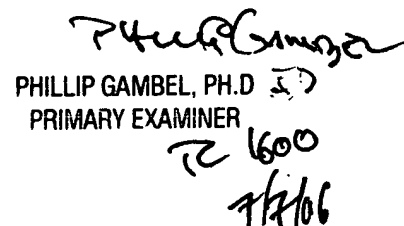 PHILLIP GAMBEL
PHILLIP GAMBEL, PH.D JD
PRIMARY EXAMINER
TC 1600
7/7/06